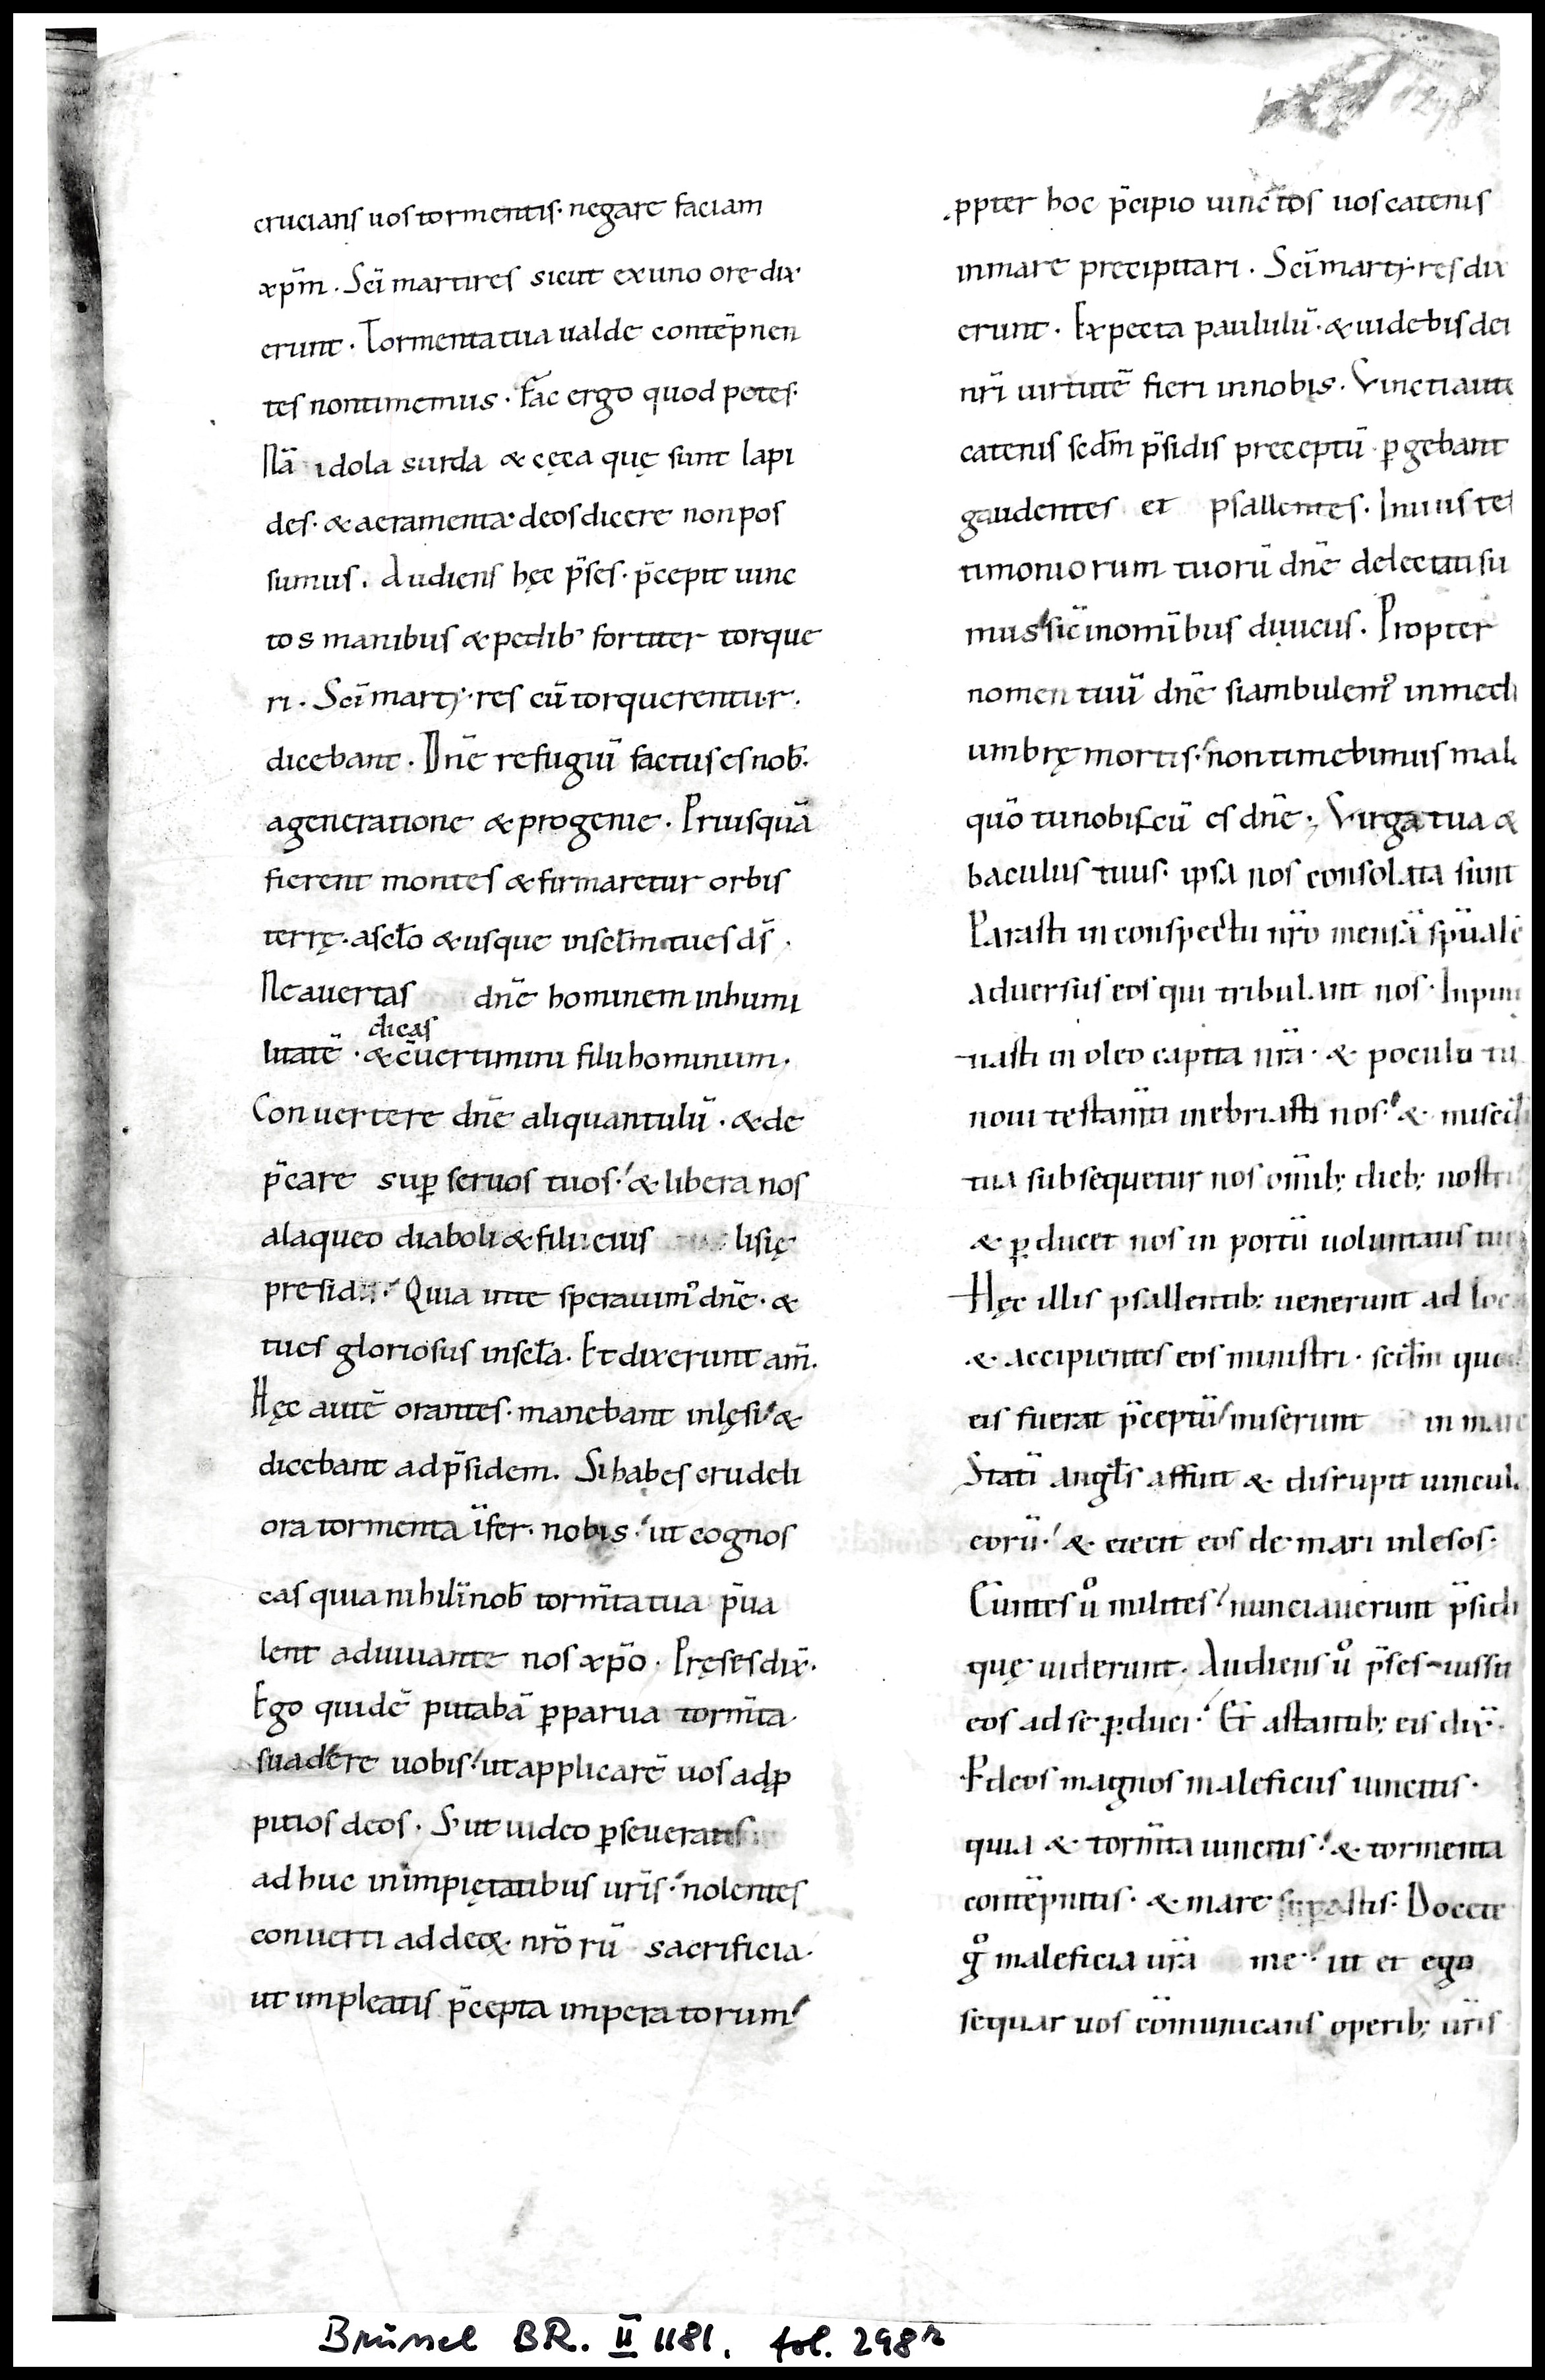 298
crucians uos tormentis· negare faciam
xp̄m . Sc̄i martires sicut ex uno ore dix
erunt . Tormenta tua ualde contēpnen
tes non timemus . Fac ergo quod potes·
Nā idola surda & cęca quę sunt lapi
des· & acramenta· deos dicere non pos
sumus . Audiens hęc p̄ses· p̄cepit uinc
tos manibus & pedib' fortiter torque
ri . Sc̄i martyres cū torquerentur .
dicebant . Dn̄e refugiū factus es nob̄·
a generatione & progenie . Priusquā
fierent montes & firmaretur orbis
terrę· a sc̄lo & usque in sc̄lm tu es ds̄ .
Ne auertas dn̄e hominem in humi
dicas
litatē · & c̄uertimini filii hominum·
Conuertere dn̄e aliquantulū · & de
p̄care suꝑ seruos tuos·' & libera nos
a laqueo diaboli & filii eius lisię
presidis·' Quia in te sperauim' dn̄e· &
tu es gloriosus in sc̄la . Et dixerunt am̄.
Hęc autē orantes· manebant inlęsi·' &
dicebant ad p̄sidem . Si habes crudeli
ora tormenta īfer· nobis·' ut cognos
cas quia nihil in nob̄ torm̄ta tua p̄ua
lent adiuuante nos xp̄o . Pręses dix̄·
Ego quidē putabā ꝑ parua torm̄ta·
suadere uobis·' ut applicarē uos ad ꝓ
pitios deos . S; ut uideo ꝑseueratis
ad huc in impiętatibus ur̄is·' nolentes
conuerti ad deoꝝ nr̄orū sacrificia·
ut impleatis p̄cepta imperatorum·'
ꝓpter hoc p̄cipio uinctos uos catenis
in mare precipitari . Sc̄i martyres dix
erunt . Expecta paululū· & uidebis dei
nr̄i uirtutē fieri in nobis . Vincti autē
catenis sc̄dm p̄sidis preceptū ꝑgebant
gaudentes et psallentes . In uiis tes
timoniorum tuorū dn̄e delectati su
mus·' sic̄ in om̄ibus diuiciis . Propter
nomen tuū dn̄e si ambulem' in medi
umbrę mortis·' non timebimus mal
quō tu nobiscū es dn̄e ., Virga tua &
baculus tuus· ipsa nos consolata sunt
Parasti in conspectu nr̄o mensā sp̄ualē
aduersus eos qui tribulant nos· Inpin
uasti in oleo capita nr̄a· & poculo tu
noui testam̄ti inebriasti nos·' & misc̄di
tua subsequetur nos om̄ib; dieb; nostris
& ꝑducet nos in portū uoluntatis tuę
Hęc illis psallentib; uenerunt ad loc
& accipientes eos ministri· sc̄dm quod
eis fuerat p̄ceptū·' miserunt in mare
Statī angl̄s affuit & disrupit uincul
eorū·' & eiecit eos de mari inlesos·
Euntes u̇ milites·' nunciauerunt p̄sidi
quę uiderunt . Audiens u̇ p̄ses iussit
eos ad se ꝑduci·' Et astantib; eis dix̄·
Per deos magnos maleficiis uincitis·
quia & torm̄ta uincitis·' & tormenta
contēpnitis· & mare suꝑastis· Docete
g̊ maleficia ur̄a me·' ut et ego
sequar uos cōmunicans operib; ur̄is
Brüssel BR. II 1181, fol. 298r